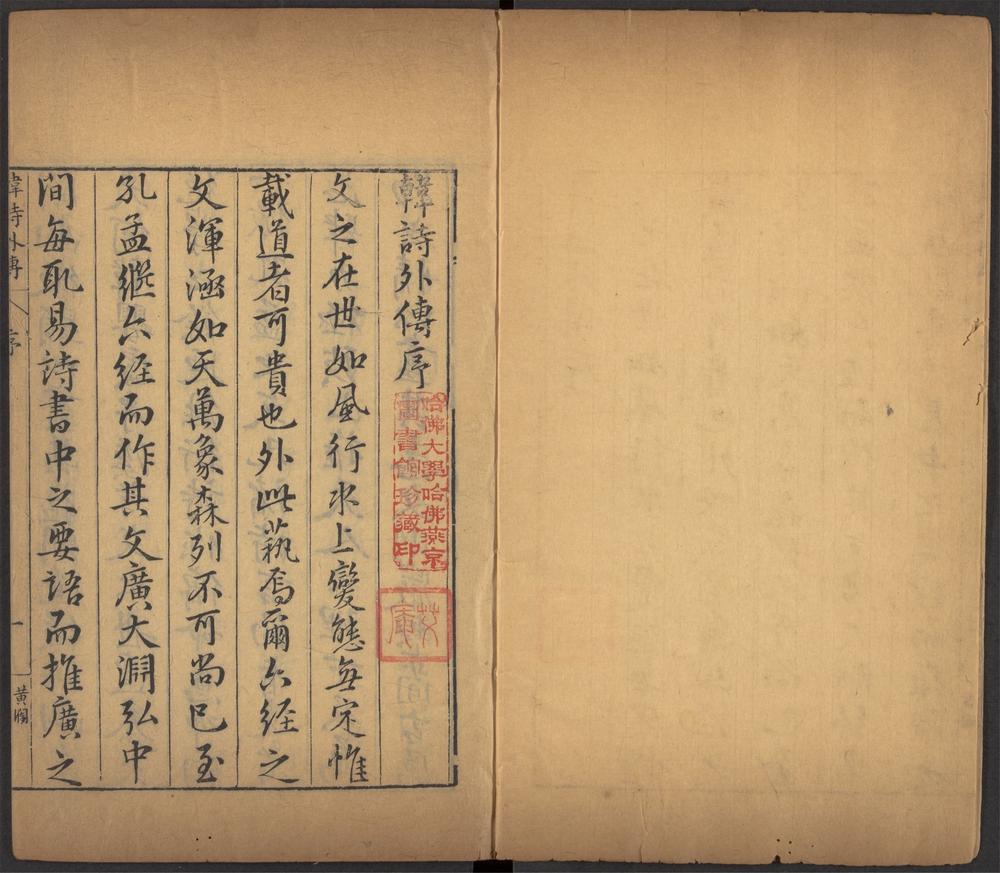 韓詩外傳序
哈佛大學哈佛燕京
圖書館珍藏印
文之在世如風行水上變態無定惟
載道者可貴也外此蓺焉爾六経之
文渾涵如天萬象森列不可尚已至
孔孟継六経而作其文廣大淵弘中
間每取易詩書中之要語而推廣之
韓詩外傳
序
一